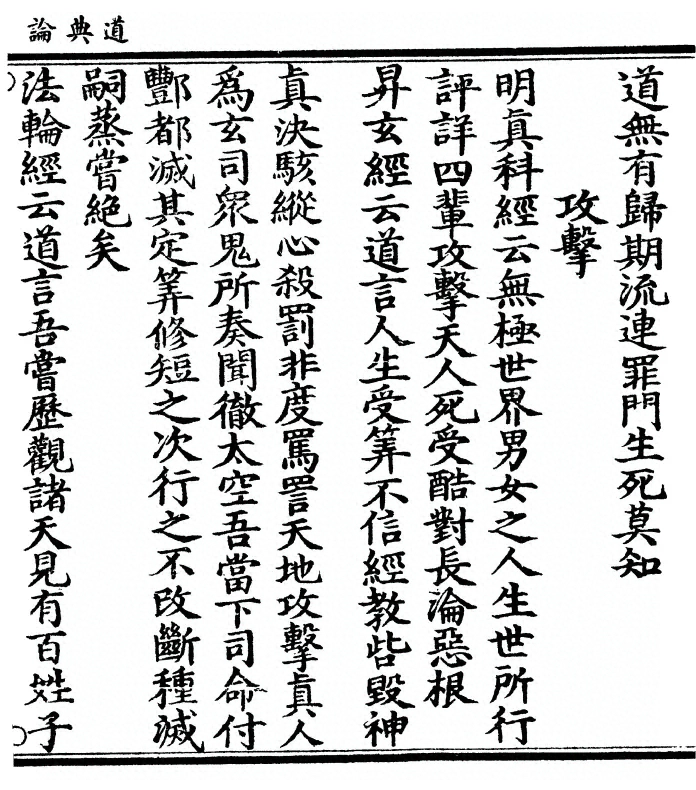 道典論
道無有歸期流連罪門生死莫知
攻擊
明真科經云無極世界男女之人生世所行
評詳四輩攻擊天人死受酷對長淪惡根
昇玄經云道言人生受筭不信經教呰毀神
真決駭縱心殺罰非度罵詈天地攻擊真人
爲玄司衆鬼所奏聞徹太空吾當下司命付
酆都滅其定筭修短之次行之不改斷種滅
嗣蒸嘗絕矣
法輪經云道言吾嘗歷觀諸天見有百姓子